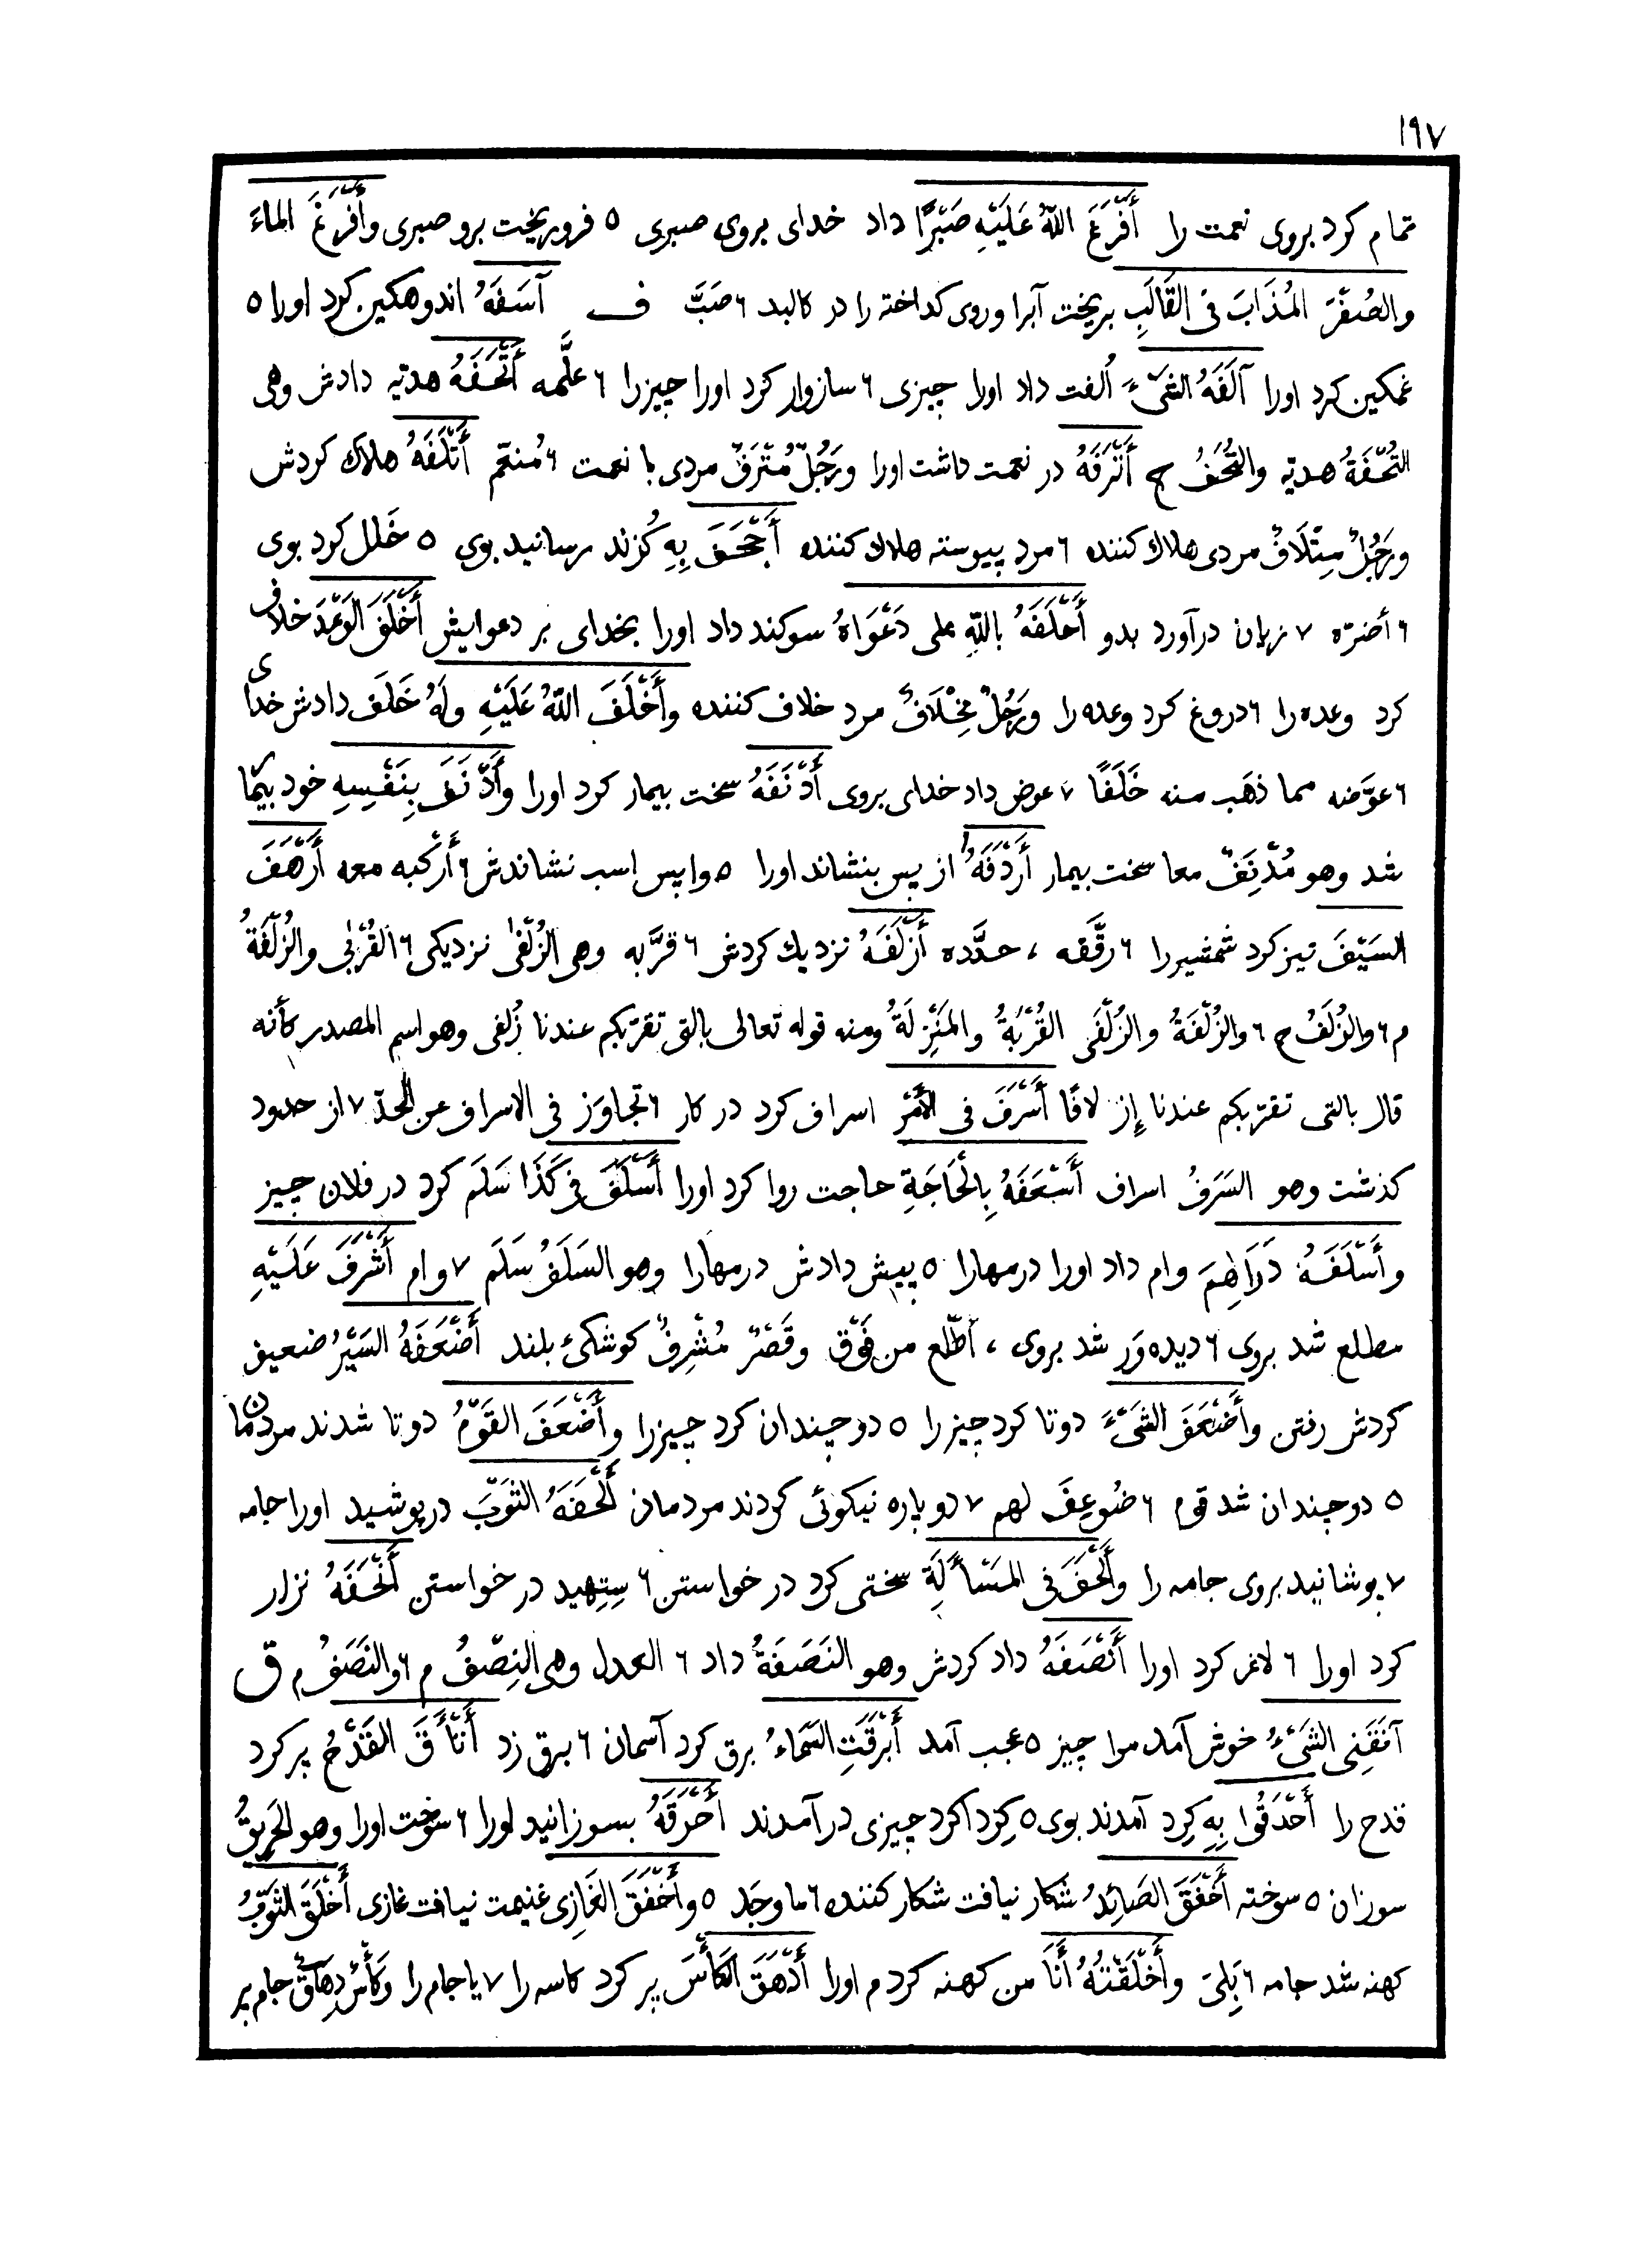 ١٩٧
تمام کرد بروی نعمت را أَفْرَغَ اللّٰهُ عَلَيْهِ صَبْرًا داد خدای بروی صبری ٥ فروریخت برو صبری وأَفْرَغَ الماءَ
والصُفْرَ المُذَابَ فی القَالَبِ بریخت آبرا وروی کداخته را در کالبد ٦ صَبَّ ف آسَفَهُ اندوهکین کرد اورا ٥
غمکین کرد اورا آلَفَهُ الشَیْءَ اُلفت داد اورا چیزی ٦ سازوار کرد اورا چیزرا ٦ علَّمه أَتْحَفَهُ هدیّه دادش وهی
التُحْفَةُ هدیّه والتُحَفُ ج أَتْرَفَهُ در نعمت داشت اورا ورَجُلٌ مُتْرَفٌ مردی با نعمت ٦ مُنعَّم أَتْلَفَهُ هلاك کردش
ورَجُلٌ مِتْلَافٌ مردی هلاك کننده ٦ مرد پیوسته هلاك کننده أَجْحَفَ بِهِ کُزند رسانید بوی ٥ خَلل کرد بوی
٦ أضرّه ٧ زیان درآورد بدو أَحْلَفَهُ بِاللّٰهِ علی دَعْوَاهُ سوکند داد اورا بخدای بر دعوایش أَخْلَفَ الوَعْدَ خلاف
کرد وعده را ٦ دروغ کرد وعده را ورَجُلٌ مِخْلَافٌ مرد خلاف کننده وأَخْلَفَ اللّٰهُ عَلَيْهِ ولَهُ خَلَف دادش خدای
٦ عوّضه مما ذهَب منه خَلَفًا ٧ عوض داد خدای بروی أَدْنَفَهُ سخت بیمار کرد اورا وأَدْنَفَ بِنَفْسِهِ خود بیما
شد وهو مُدْنِفٌ معا سخت بیمار أَرْدَفَهُ از پس بنشاند اورا ٥ واپس اسب نشاندش ٦ أَرْکَبه معه أَرْهَفَ
السَیْفَ تیز کرد شمشیررا ٦ رقَّقه ، حدَّده أَزْلَفَهُ نزدیك کردش ٦ قرَّبه وهی الزُلْفٰی نزدیکی ٦ القُرْبٰی والزُلْفَةُ
م ٦ والزُلَفُ ج ٦ والزُلْفَةُ والزُلْفَی القُرْبَةُ والمَنْزِلَةُ ومنه قوله تعالی بالتی تقرّبکم عندنا زُلفی وهو اسم المصدر کأنه
قال بالتی تقرّبکم عندنا إِزلافًا أَسْرَفَ فی الأَمْرِ اسراف کرد در کار ٦ تجاوَز فی الاسراف عن الحدّ ٧ از حدود
کذشت وهو السَرَفُ اسراف أَسْعَفَهُ بِالْحَاجَةِ حاجت روا کرد اورا أَسْلَفَ فی کَذَا سَلَم کرد در فلان چیز
وأَسْلَفَهُ دَرَاهِمَ وام داد اورا درمهارا ٥ پیش دادش درمهارا وهو السَلَفُ سَلَم ٧ وام أَشْرَفَ عَلَيْهِ
مطلع شد بروی ٦ دیده‌وَر شد بروی ، اطّلع من فَوْق وقَصْرٌ مُشْرِفٌ کوشکیء بلند أَضْعَفَهُ السَیْرُ ضعیف
کردش رفتن وأَضْعَفَ الشَیْءَ دوتا کرد چیز را ٥ دو چندان کرد چیزرا وأَضْعَفَ القَوْمُ دوتا شدند مردمان
٥ دوچندان شد قوم ٦ ضُوعِفَ لهم ٧ دوباره نیکوئی کردند مردمان أَلْحَفَهُ الثَوْبَ درپوشید اورا جامه
٧ پوشانید بروی جامه را وأَلْحَفَ فی المَسْأَلَةِ سختی کرد در خواستن ٦ سِتِهید در خواستن أَنْحَفَهُ نزار
کرد اورا ٦ لاغر کرد اورا أَنْصَفَهُ داد کردش وهو النَصَفَةُ داد ٦ العدل وهی النِصْفُ م ٦ والنَصَفُ م ق
آنَقَنِی الشَیْءُ خوش آمد مرا چیز ٥ عجب آمد أَبْرَقَتِ السَّمَاءُ برق کرد آسمان ٦ برق زد أَتْأَقَ القَدَحَ پر کرد
قدح را أَحْدَقُوا بِهِ کِرد آمدند بوی ٥ کِرداکرد چیزی درآمدند أَحْرَقَهُ بسوزانید اورا ٦ سوخت اورا وهو الحَرِیقُ
سوزان ٥ سوخته أَخْفَقَ الصَائِدُ شکار نیافت شکار کننده ٦ ما وجَد ٥ وأَخْفَقَ الغَازِی غنیمت نیافت غازی أَخْلَقَ الثَوْبُ
کهنه شد جامه ٦ بَلِیَ وأَخْلَقْتُهُ أَنَا من کهنه کردم اورا أَدْهَقَ الکَأْسَ پر کرد کاسه را ٧ یا جام را وکَأْسٌ دِهَاقٌ جام پر